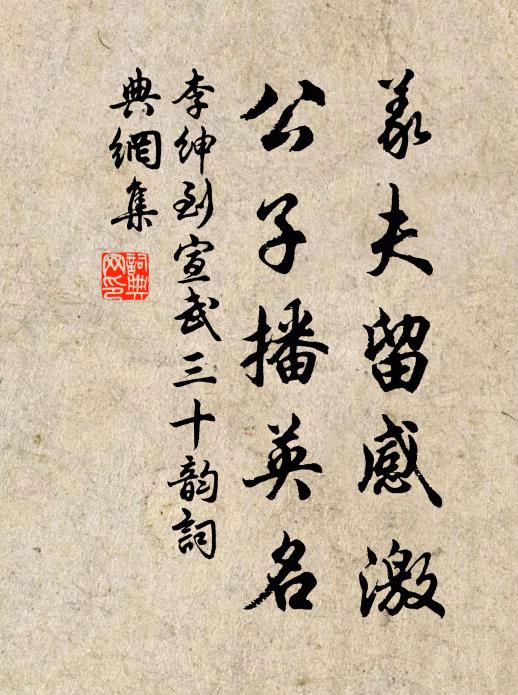 義夫留感激
公子播英名
李紳到宣武三十韵詞
典網集
詞典網印